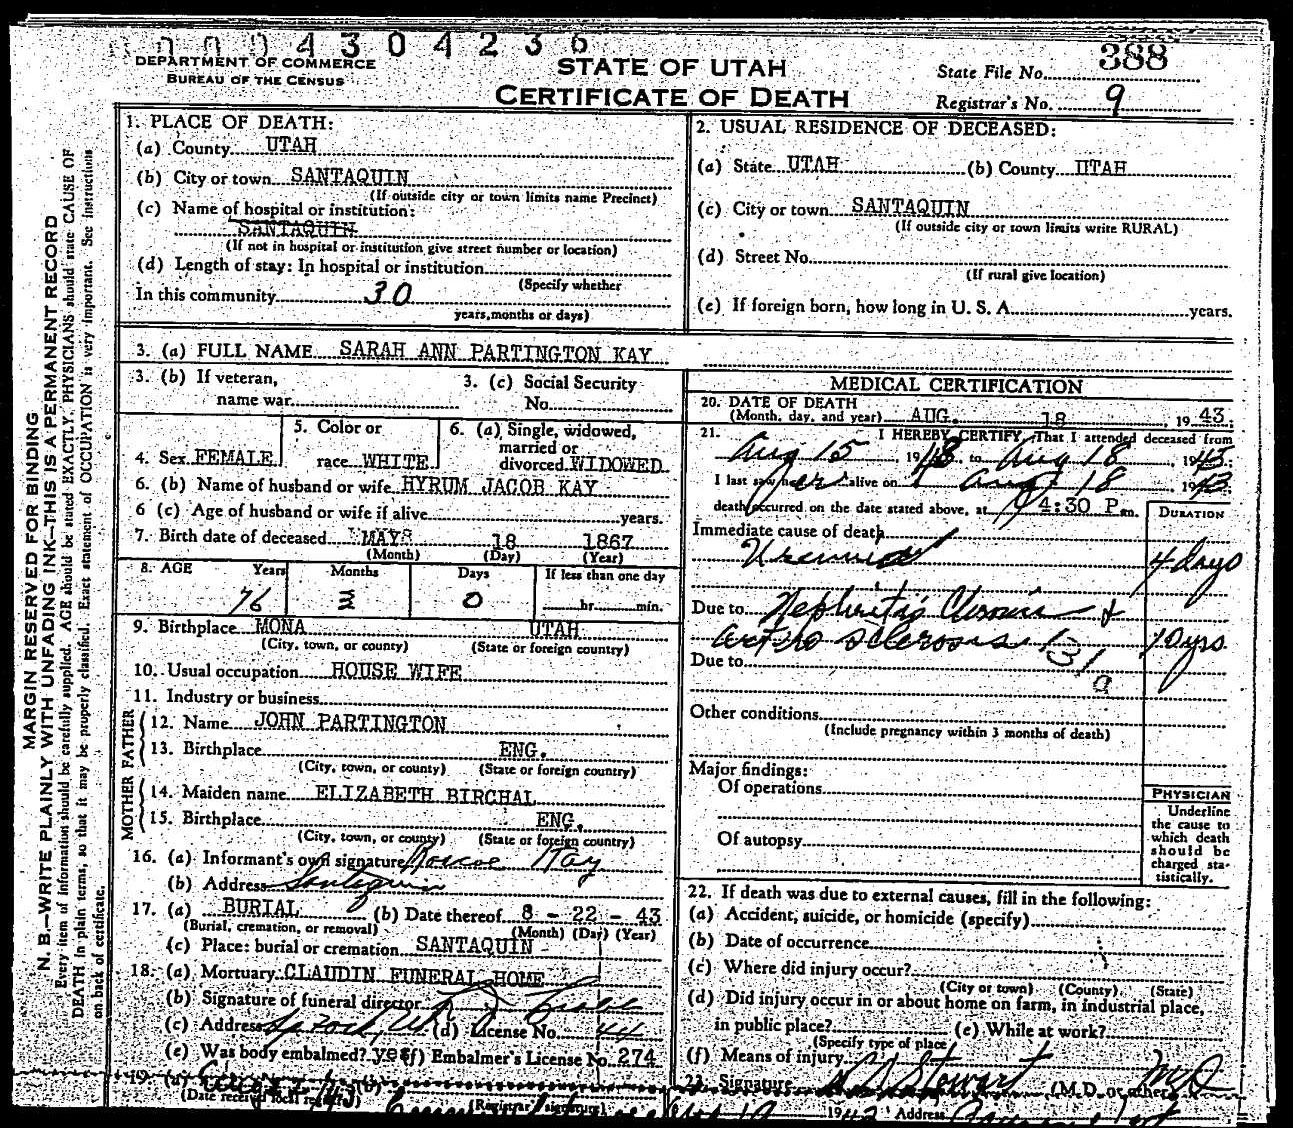 0004304236
DEPARTMENT OF COMMERCE
BUREAU OF THE CENSUS
STATE OF UTAH
CERTIFICATE OF DEATH
State File No. 388
Registrar's No. 9
MARGIN RESERVED FOR BINDING
N. B.—WRITE PLAINLY WITH UNFADING INK—THIS IS A PERMANENT RECORD
Every item of information should be carefully supplied. AGE should be stated EXACTLY. PHYSICIANS should state CAUSE OF
DEATH in plain terms, so that it may be properly classified. Exact statement of OCCUPATION is very important. See instructions
on back of certificate.
1. PLACE OF DEATH:
(a) County UTAH
(b) City or town SANTAQUIN
(If outside city or town limits name Precinct)
(c) Name of hospital or institution:
SANTAQUIN
(If not in hospital or institution give street number or location)
(d) Length of stay: In hospital or institution
(Specify whether
In this community 30
years, months or days)
2. USUAL RESIDENCE OF DECEASED:
(a) State UTAH (b) County UTAH
(c) City or town SANTAQUIN
(If outside city or town limits write RURAL)
(d) Street No.
(If rural give location)
(e) If foreign born, how long in U. S. A. years.
3. (a) FULL NAME SARAH ANN PARTINGTON KAY
3. (b) If veteran,
name war
3. (c) Social Security
No.
4. Sex FEMALE
5. Color or
race WHITE
6. (a) Single, widowed,
married or
divorced WIDOWED
6. (b) Name of husband or wife HYRUM JACOB KAY
6 (c) Age of husband or wife if alive years.
7. Birth date of deceased MAY 18 1867
(Month) (Day) (Year)
8. AGE Years Months Days If less than one day
76 3 0 hr. min.
9. Birthplace MONA UTAH
(City, town, or county) (State or foreign country)
10. Usual occupation HOUSE WIFE
11. Industry or business
FATHER
12. Name JOHN PARTINGTON
13. Birthplace ENG.
(City, town, or county) (State or foreign country)
MOTHER
14. Maiden name ELIZABETH BIRCHAL
15. Birthplace ENG.
(City, town, or county) (State or foreign country)
16. (a) Informant's own signature Roscoe Kay
(b) Address Santaquin
17. (a) BURIAL (b) Date thereof 8 - 22 - 43
(Burial, cremation, or removal) (Month) (Day) (Year)
(c) Place: burial or cremation SANTAQUIN
18. (a) Mortuary CLAUDIN FUNERAL HOME
(b) Signature of funeral director
(c) Address (d) License No. 44
(e) Was body embalmed? yes (f) Embalmer's License No. 274
19. (a)
(Date received local registrar) (Registrar's signature)
MEDICAL CERTIFICATION
20. DATE OF DEATH
(Month, day, and year) AUG. 18, 1943.
21. I HEREBY CERTIFY, That I attended deceased from
Aug 15, 1943, to Aug 18, 1943.
I last saw her alive on Aug 18, 1943
death occurred on the date stated above, at 4:30 P.m.
DURATION
Immediate cause of death
Uremia 4 days
Due to Nephritis Chronic &
Artero sclerosis 10 yrs.
131
a
Due to
Other conditions
(Include pregnancy within 3 months of death)
Major findings:
Of operations
Of autopsy
PHYSICIAN
Underline
the cause to
which death
should be
charged sta-
tistically.
22. If death was due to external causes, fill in the following:
(a) Accident, suicide, or homicide (specify)
(b) Date of occurrence
(c) Where did injury occur?
(City or town) (County) (State)
(d) Did injury occur in or about home on farm, in industrial place,
in public place? (e) While at work?
(Specify type of place
(f) Means of injury
23. Signature Stewart (M.D. or other) MD
1943 Address